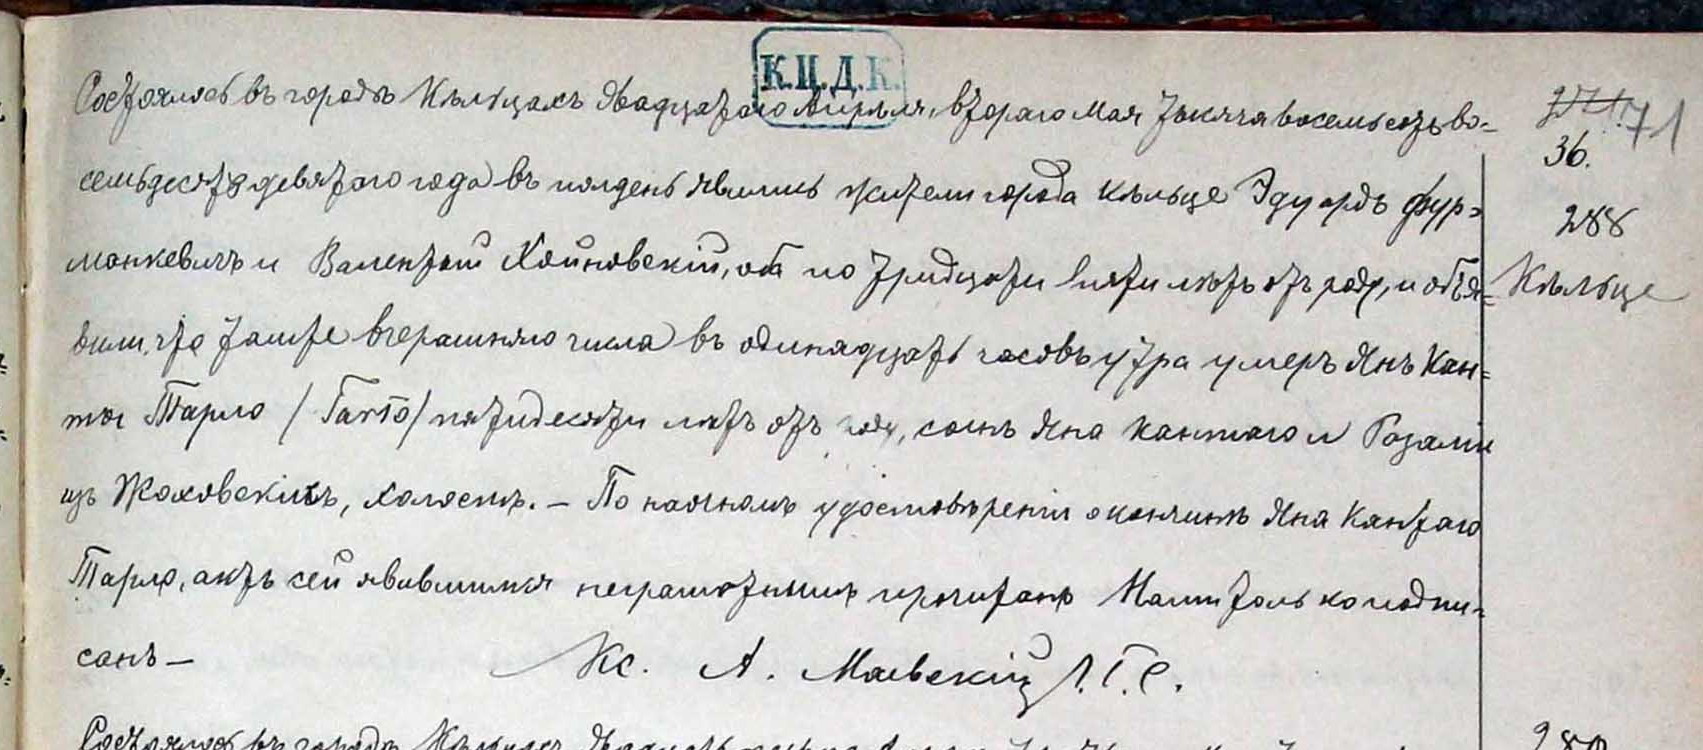 К.Ц.Д.К.
Состоялось въ городѣ Кѣльцахъ двадцатаго Апрѣля, втораго Мая тысяча восемьсотъ во-
271. 71
36.
семьдесятъ девятаго года въ полдень явились жители города Кѣльце Эдуардъ Фур-
288
манкевичъ и Валентый Хойновскій, оба по тридцати пяти лѣтъ отъ роду, и объя-
Кѣльце
вили, что тамже вчерашняго числа въ одинадцать часовъ утра умеръ Янъ Кан-
ты Тарло /Tarło/ пятидесяти лѣтъ отъ роду, сынъ Яна Кантаго и Розаліи
изъ Жоховскихъ, холостъ. — По наочномъ удостовѣреніи о кончинѣ Яна Кантаго
Тарло, актъ сей явившимся неграмотнымъ прочитанъ Нами только подпи-
санъ —
Кс. А. Маевскій П. Г. С.
Состоялось въ городѣ
289